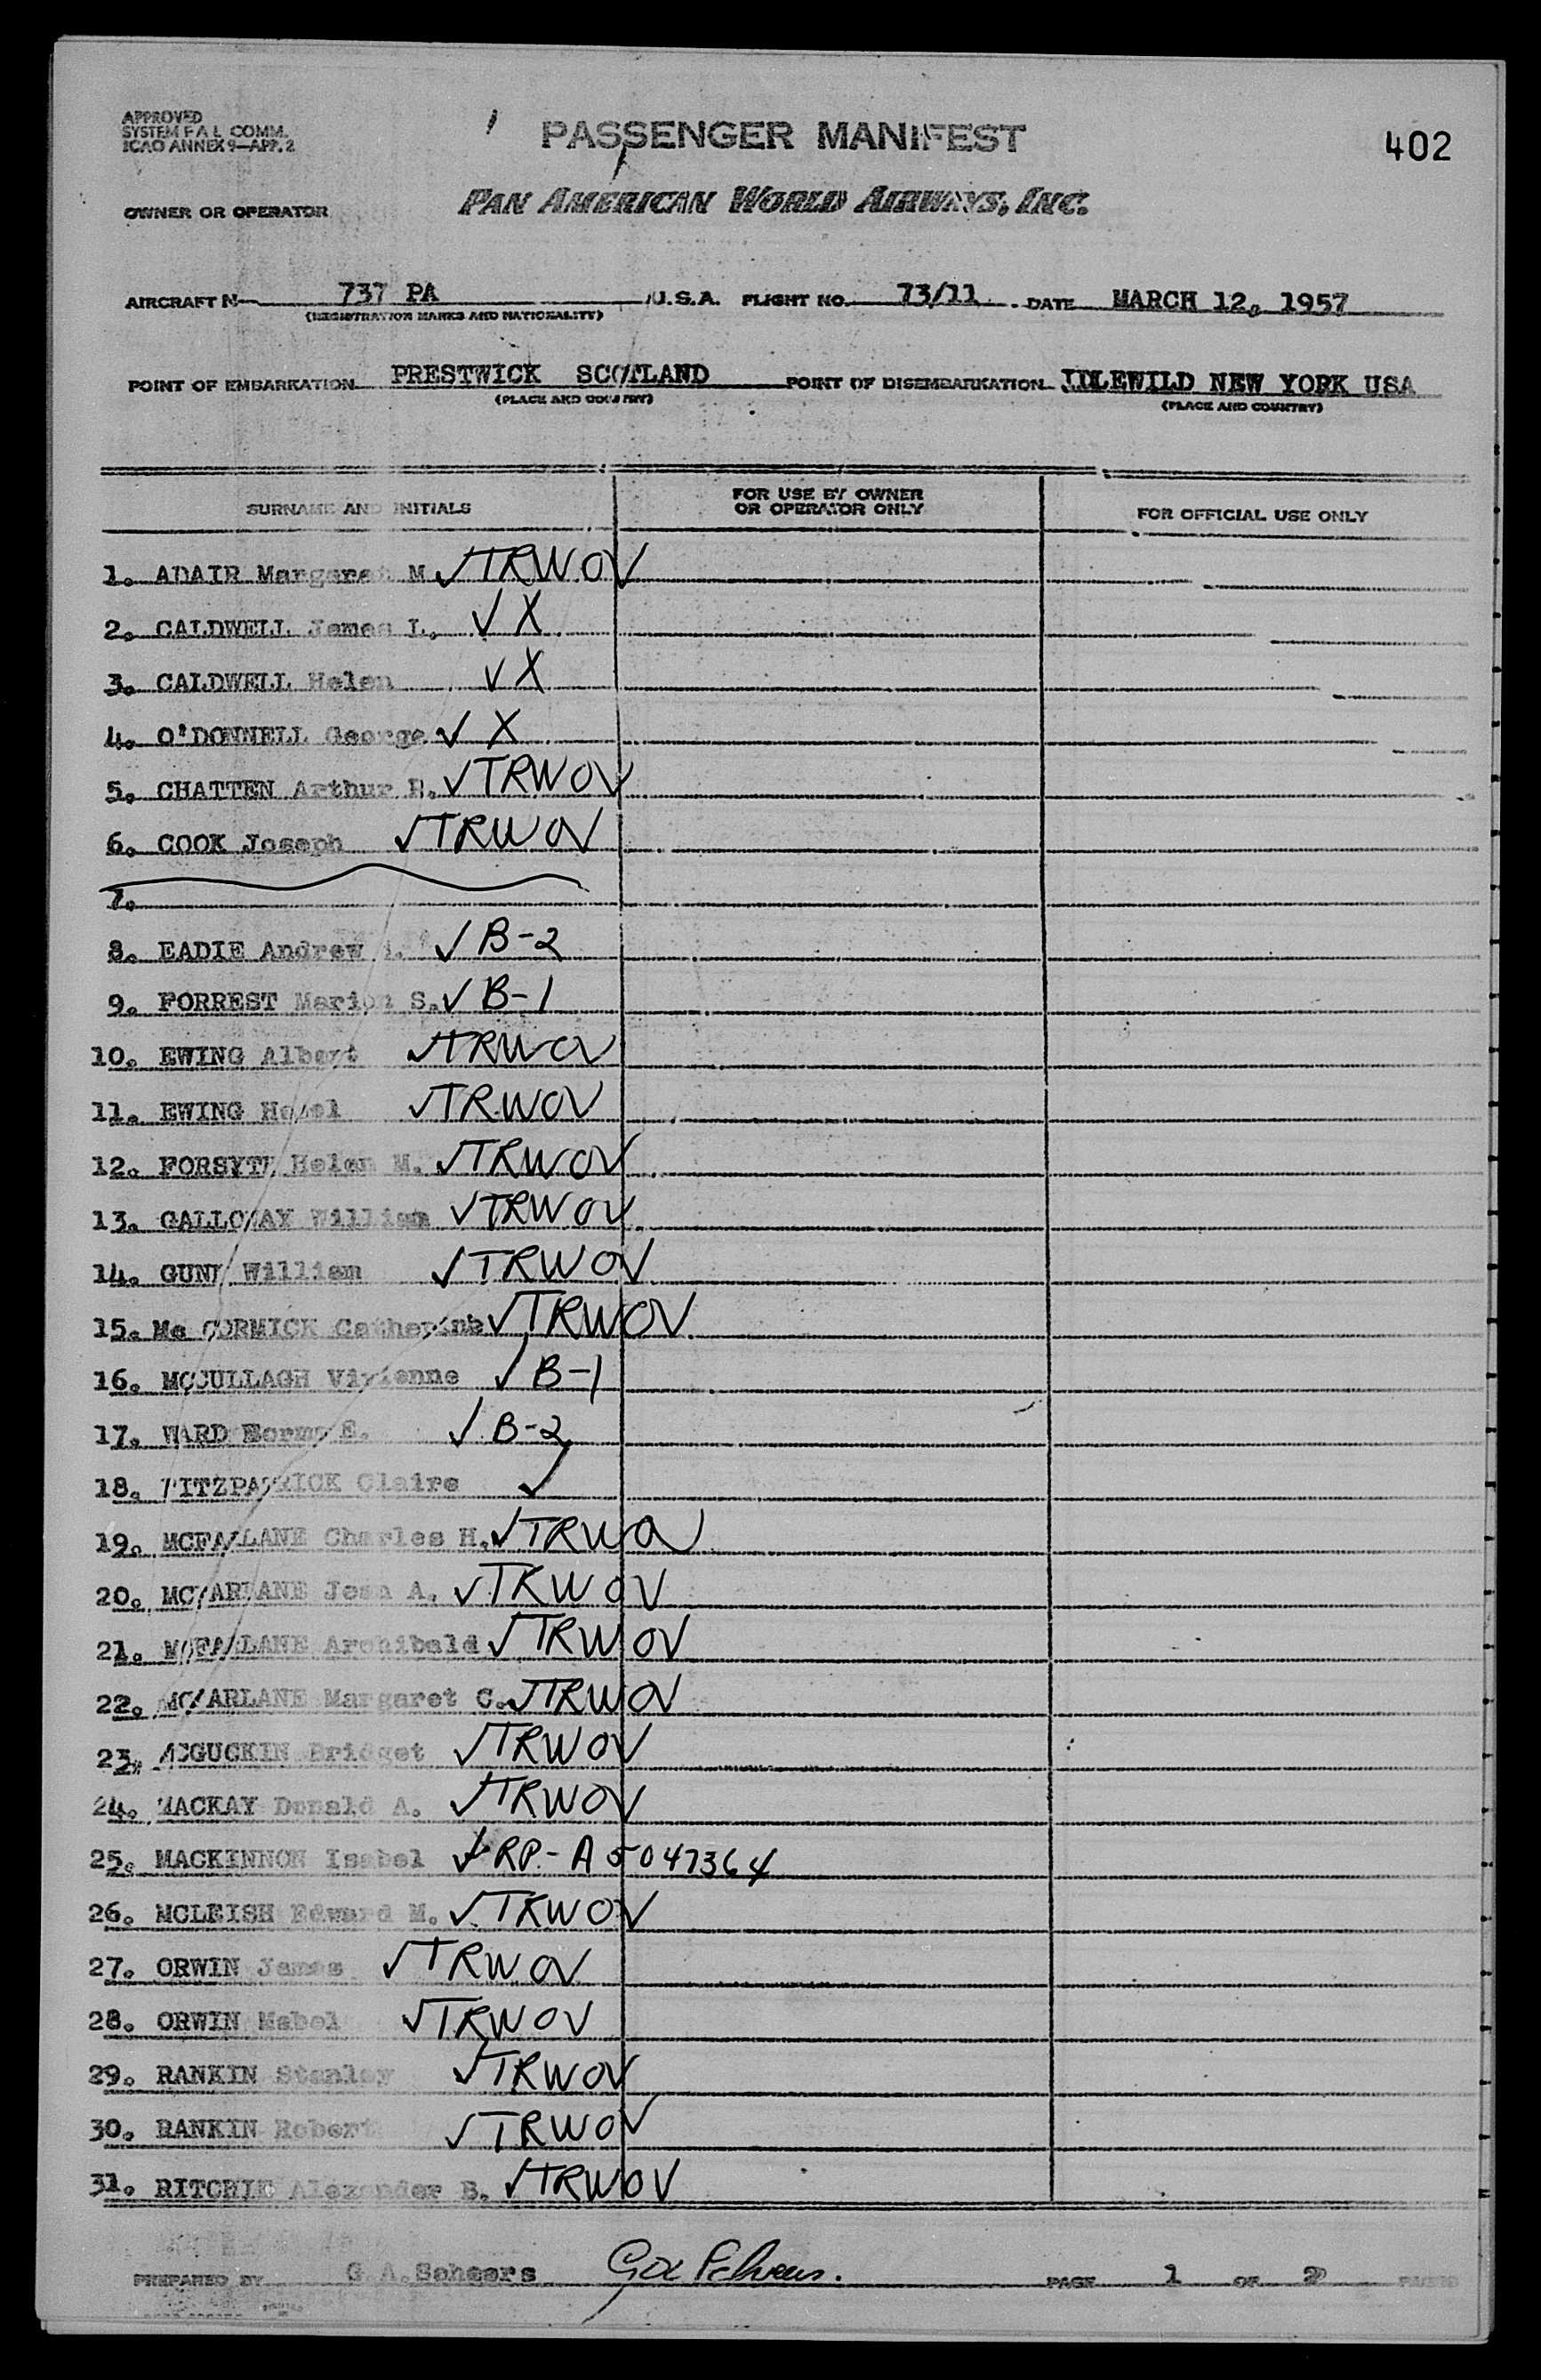 APPROVED
SYSTEM F A L COMM.
ICAO ANNEX 9—APP. 2
PASSENGER MANIFEST
402
OWNER OR OPERATOR
PAN AMERICAN WORLD AIRWAYS, INC.
AIRCRAFT N 737 PA U.S.A. FLIGHT NO. 73/11 DATE MARCH 12, 1957
(REGISTRATION MARKS AND NATIONALITY)
POINT OF EMBARKATION PRESTWICK SCOTLAND POINT OF DISEMBARKATION IDLEWILD NEW YORK USA
(PLACE AND COUNTRY) (PLACE AND COUNTRY)
SURNAME AND INITIALS
FOR USE BY OWNER
OR OPERATOR ONLY
FOR OFFICIAL USE ONLY
1. ADAIR Margaret M ✓TRWOV
2. CALDWELL James I. ✓ X
3. CALDWELL Helen ✓ X
4. O'DONNELL George ✓ X
5. CHATTEN Arthur ✓TRWOV
6. COOK Joseph ✓TRWOV
7.
8. EADIE Andrew ✓ B-2
9. FORREST Marion S. ✓ B-1
10. EWING Albert ✓TRWOV
11. EWING Hazel ✓TRWOV
12. FORSYTH Helen M. ✓TRWOV
13. GALLOWAY William ✓TRWOV
14. GUNN William ✓TRWOV
15. Mc CORMICK Catherine ✓TRWOV
16. MCCULLAGH Vivienne ✓ B-1
17. WARD Norma E. ✓ B-2
18. FITZPATRICK Claire ✓
19. MCFARLANE Charles H. ✓TRWOV
20. MCFARLANE Jean A. ✓TRWOV
21. MCFARLANE Archibald ✓TRWOV
22. MCFARLANE Margaret C. ✓TRWOV
23. MCGUCKIN Bridget ✓TRWOV
24. MACKAY Donald A. ✓TRWOV
25. MACKINNON Isabel ✓RP-A5047364
26. MCLEISH Edward M. ✓TRWOV
27. ORWIN James ✓TRWOV
28. ORWIN Mabel ✓TRWOV
29. RANKIN Stanley ✓TRWOV
30. RANKIN Robert ✓TRWOV
31. RITCHIE Alexander B. ✓TRWOV
PREPARED BY G A. Scheers PAGE 1 OF 2 PAGES